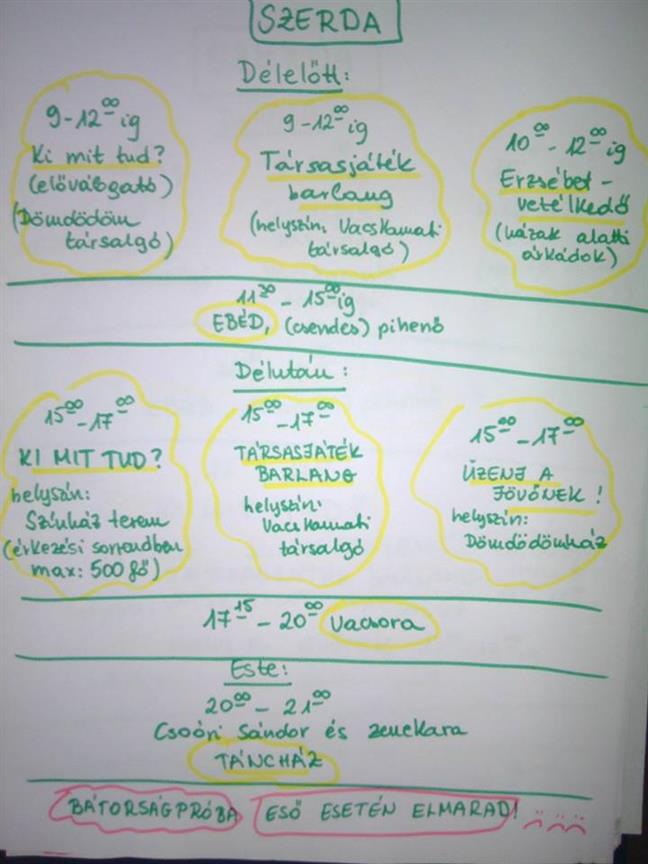 SZERDA
Délelőtt:
9-12⁰⁰ig
Ki mit tud?
(előválogató)
(Dömdödöm
társalgó)
9-12⁰⁰ig
Társasjáték
barlang
(helyszín, Vacskamati
társalgó)
10⁰⁰-12⁰⁰ig
Erzsébet-
vetélkedő
(házak alatti
árkádok)
11³⁰ - 15⁰⁰ig
EBÉD, (csendes) pihenő
Délután:
15⁰⁰-17⁰⁰
KI MIT TUD?
helyszín:
Színház terem
(érkezési sorrendben
max: 500 fő)
15⁰⁰-17⁰⁰
TÁRSASJÁTÉK
BARLANG
helyszín:
Vacskamati
társalgó
15⁰⁰-17⁰⁰
ÜZENJ A
JÖVŐNEK!
helyszín:
Dömdödömház
17¹⁵ - 20⁰⁰ Vacsora
Este:
20⁰⁰ - 21⁰⁰
Csoóri Sándor és zenekara
TÁNCHÁZ
BÁTORSÁGPRÓBA ESŐ ESETÉN ELMARAD!